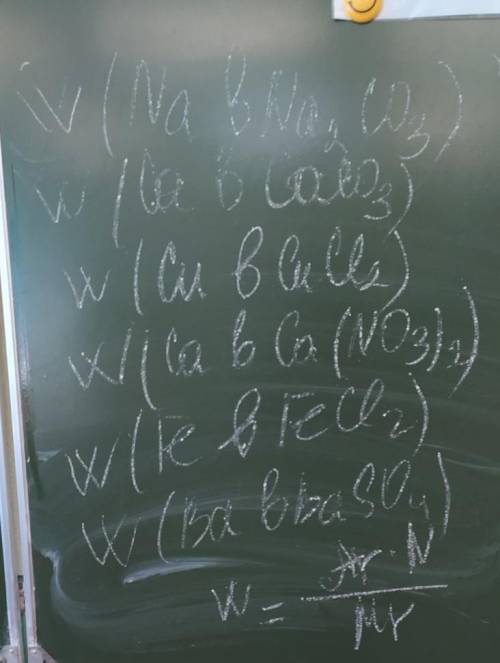 W (Na в Na₂CO₃)
W (Ca в CaCO₃)
W (Cu в CuCl₂)
W (Ca в Ca(NO₃)₂)
W (Fe в FeCl₂)
W (Ba в BaSO₄)
W = Ar · N / Mr